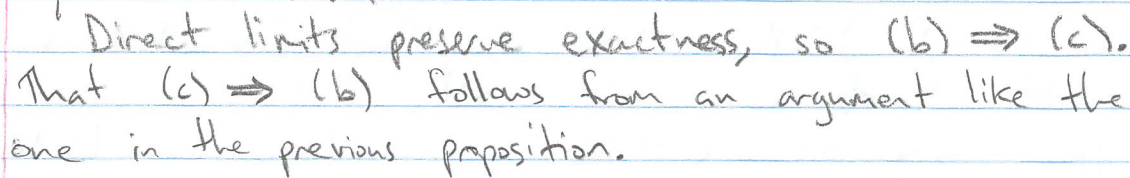 Direct limits preserve exactness, so (b) ⇒ (c).
That (c) ⇒ (b) follows from an argument like the
one in the previous proposition.